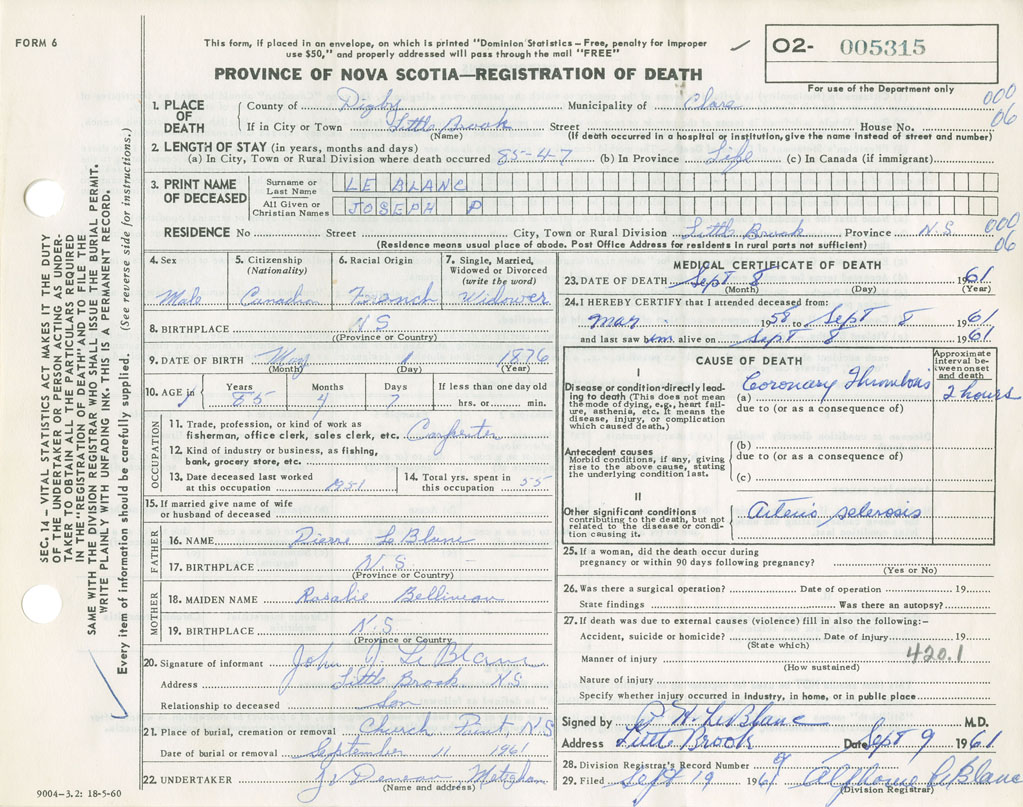 FORM 6
This form, if placed in an envelope, on which is printed "Dominion Statistics – Free, penalty for improper
use $50," and properly addressed will pass through the mail "FREE"
PROVINCE OF NOVA SCOTIA—REGISTRATION OF DEATH
O2- 005315
For use of the Department only
1. PLACE OF DEATH
County of Digby Municipality of Clare
000
06
If in City or Town Little Brook Street House No.
(Name) (If death occurred in a hospital or institution, give the name instead of street and number)
2. LENGTH OF STAY (in years, months and days)
(a) In City, Town or Rural Division where death occurred 85-4-7 (b) In Province Life (c) In Canada (if immigrant)
3. PRINT NAME OF DECEASED
Surname or Last Name LE BLANC
All Given or Christian Names JOSEPH P
RESIDENCE No Street City, Town or Rural Division Little Brook Province N.S
000
06
(Residence means usual place of abode. Post Office Address for residents in rural parts not sufficient)
4. Sex Male
5. Citizenship (Nationality) Canadian
6. Racial Origin French
7. Single, Married, Widowed or Divorced (write the word) Widower
8. BIRTHPLACE N S
(Province or Country)
9. DATE OF BIRTH May 1 1876
(Month) (Day) (Year)
10. AGE in Years 85 Months 4 Days 7 If less than one day old hrs. or min.
OCCUPATION
11. Trade, profession, or kind of work as
fisherman, office clerk, sales clerk, etc. Carpenter
12. Kind of industry or business, as fishing,
bank, grocery store, etc.
13. Date deceased last worked
at this occupation 1951
14. Total yrs. spent in
this occupation 55
15. If married give name of wife
or husband of deceased
FATHER
16. NAME Pierre Le Blanc
17. BIRTHPLACE N.S
(Province or Country)
MOTHER
18. MAIDEN NAME Rosalie Belliveau
19. BIRTHPLACE N.S
(Province or Country
20. Signature of informant John J. Le Blanc
Address Little Brook N.S
Relationship to deceased Son
21. Place of burial, cremation or removal Church Point, N.S
Date of burial or removal September 11 1961
22. UNDERTAKER J V Deveau Meteghan
(Name and address)
9004–3.2: 18-5-60
MEDICAL CERTIFICATE OF DEATH
23. DATE OF DEATH Sept 8 1961
(Month) (Day) (Year)
24. I HEREBY CERTIFY that I attended deceased from:
Mar 1958 to Sept 8 1961
and last saw him alive on Sept 8 1961
CAUSE OF DEATH
Approximate interval between onset and death
I
Disease or condition directly leading to death (This does not mean
the mode of dying, e.g., heart failure, asthenia, etc. It means the
disease, injury, or complication
which caused death.)
(a) Coronary Thrombosis 2 hours
due to (or as a consequence of)
Antecedent causes
Morbid conditions, if any, giving
rise to the above cause, stating
the underlying condition last.
(b)
due to (or as a consequence of)
(c)
II
Other significant conditions
contributing to the death, but not
related to the disease or condition causing it.
Arterio sclerosis
25. If a woman, did the death occur during
pregnancy or within 90 days following pregnancy?
(Yes or No)
26. Was there a surgical operation? Date of operation 19
State findings Was there an autopsy?
27. If death was due to external causes (violence) fill in also the following:–
Accident, suicide or homicide? Date of injury 19
(State which)
420.1
Manner of injury
(How sustained)
Nature of injury
Specify whether injury occurred in industry, in home, or in public place
Signed by W. LeBlanc M.D.
Address Little Brook Date Sept 9 1961
28. Division Registrar's Record Number 9
29. Filed Sept 19 1961 Alphonse LeBlanc
(Division Registrar)
SEC. 14 – VITAL STATISTICS ACT MAKES IT THE DUTY
OF THE UNDERTAKER OR PERSON ACTING AS UNDERTAKER TO OBTAIN ALL THE PARTICULARS REQUIRED
IN THE "REGISTRATION OF DEATH" AND TO FILE THE
SAME WITH THE DIVISION REGISTRAR WHO SHALL ISSUE THE BURIAL PERMIT.
WRITE PLAINLY WITH UNFADING INK. THIS IS A PERMANENT RECORD.
Every item of information should be carefully supplied. (See reverse side for instructions.)